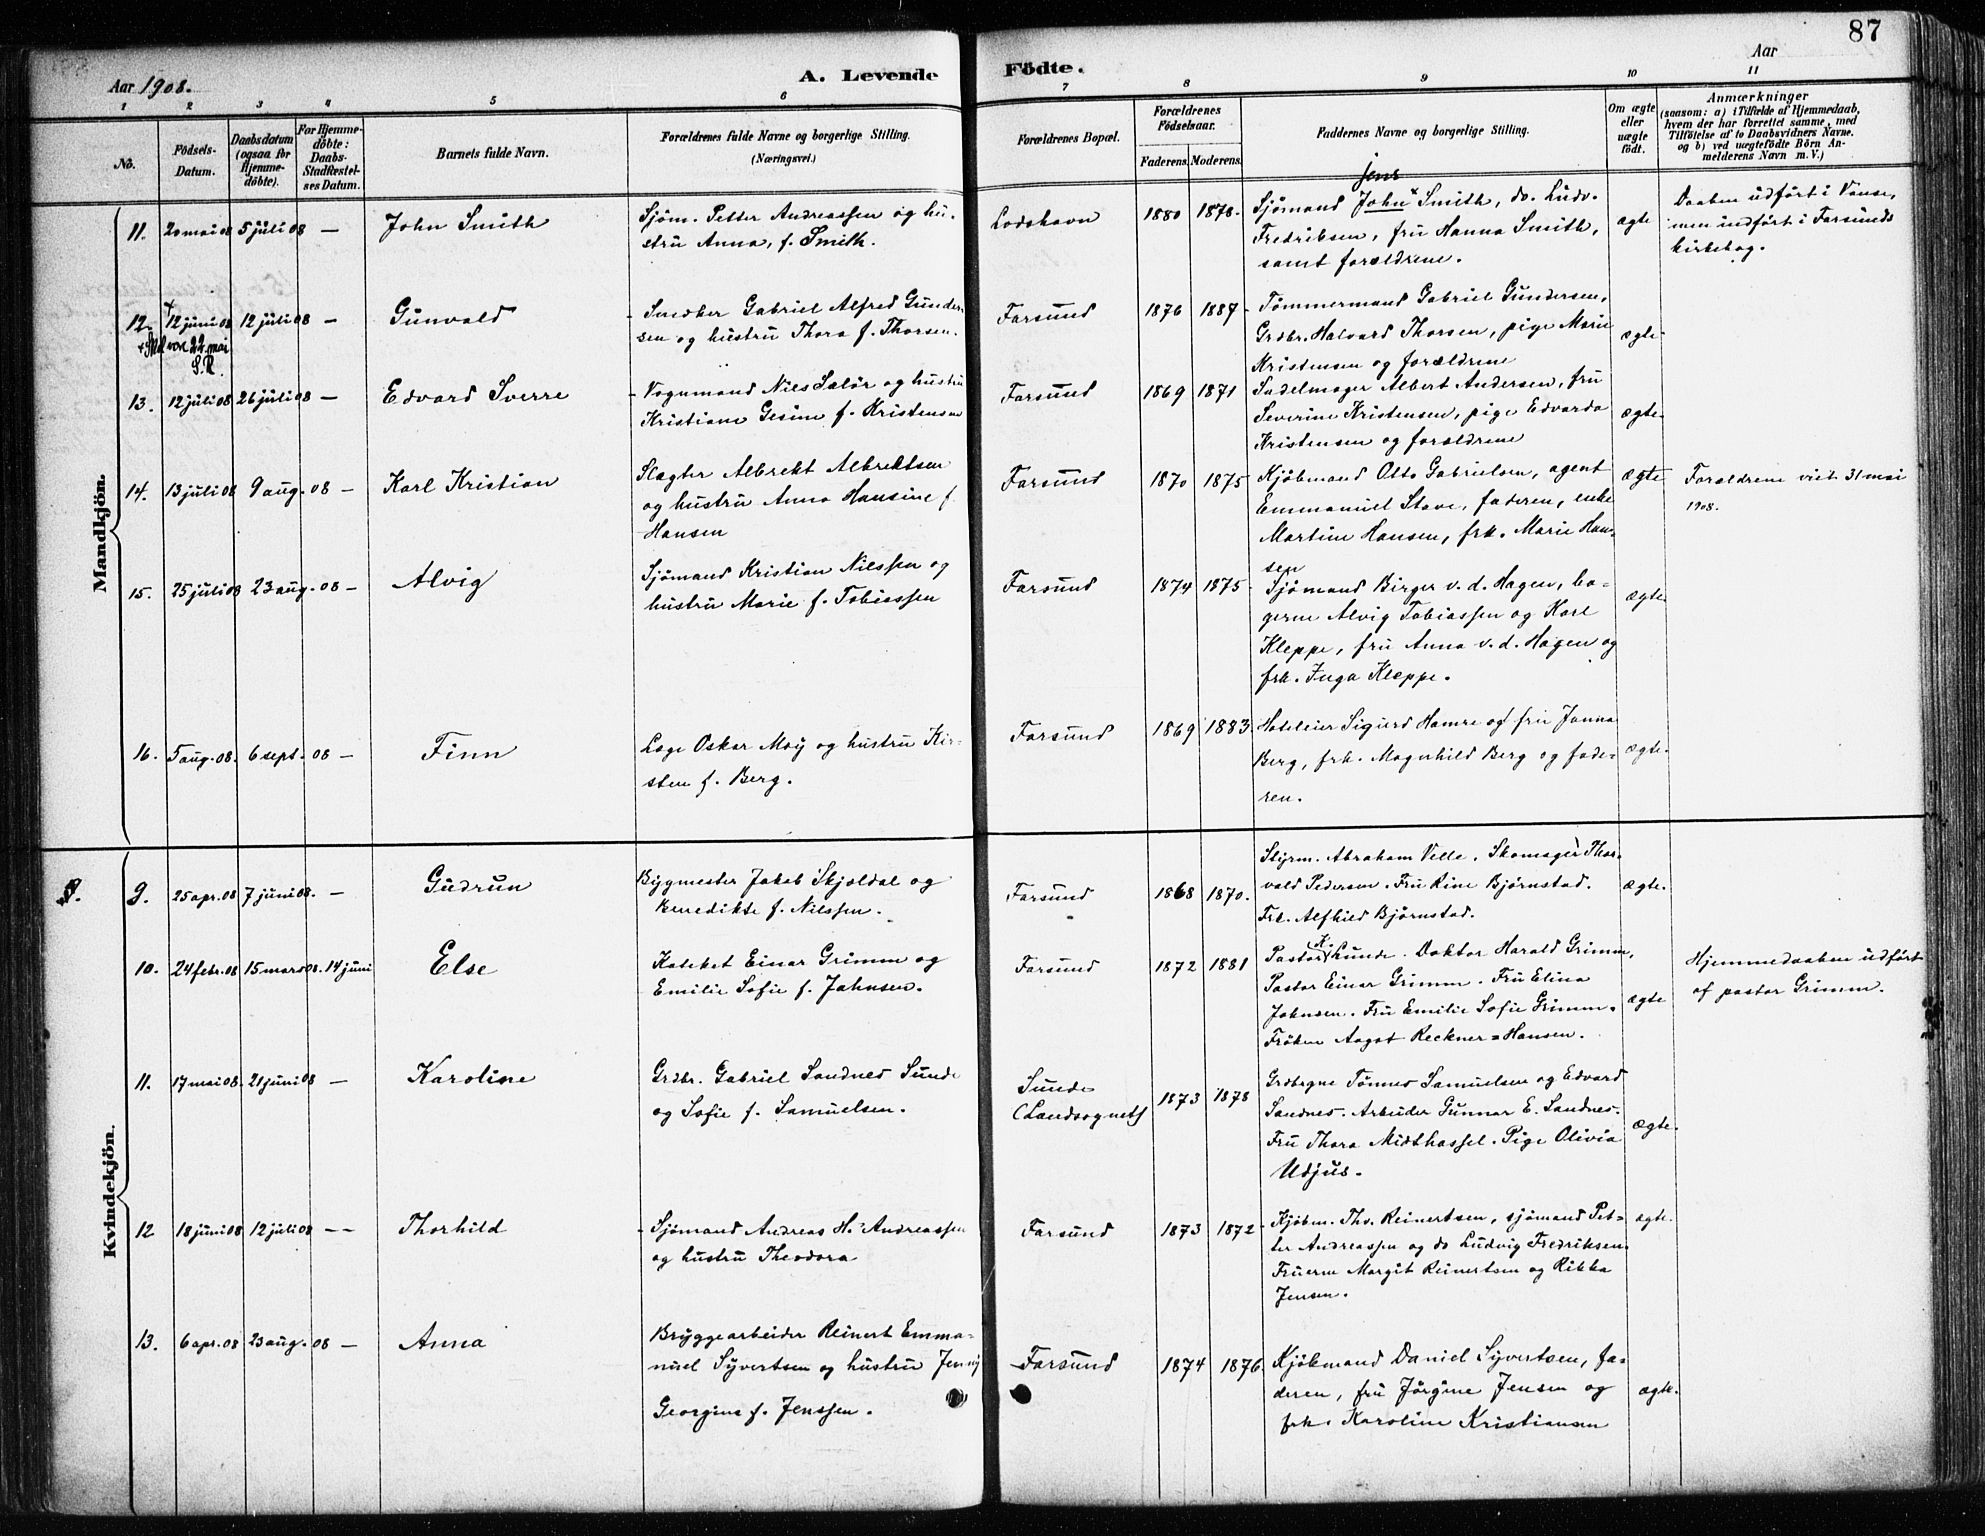 87
Aar 1908.
A. Levende Födte.
Aar
1 2 3 4 5 6 7 8 9 10 11
No.
Födsels-
Datum.
Daabsdatum
(ogsaa for
Hjemme-
döbte).
For Hjemme-
döbte:
Daabs-
Stadfæstel-
ses Datum.
Barnets fulde Navn.
Forældrenes fulde Navne og borgerlige Stilling.
(Næringsvei.)
Forældrenes Bopæl.
Forældrenes
Födselsaar.
Faderens. Moderens.
Faddernes Navne og borgerlige Stilling.
Om ægte
eller
uægte
födt.
Anmærkninger
(saasom: a) i Tilfælde af Hjemmedaab,
hvem der har forrettet samme, med
Tilföielse af to Daabsvidners Navne.
og b) ved uægtefödte Börn An-
melderens Navn m. V.)
Mandkjön.
11. 20 mai 08 5 juli 08 — John Smith
Sjøm. Petter Andreassen og hu-
stru Anna, f. Smith.
Lodshavn 1880 1878.
jens
Sjømand John Smith, do. Ludv.
Fredriksen, fru Hanna Smith,
samt forældrene.
ægte
Daaben udført i Vanse,
men indført i Farsunds
kirkebog.
12. + 12 juni 08 12 juli 08 — Gunvald
+ Skal være 22 mai
S.R.
Smeker Gabriel Alfred Gunder-
sen og hustru Thora f. Thorsen.
Farsund 1876 1887
Tømmermand Gabriel Gundersen,
Grdbr. Halvard Thorsen, pige Marie
Kristensen og forældrene
ægte
13. 12 juli 08 26 juli 08 — Edvard Sverre
Vognmand Nils Salør og hustru
Kristiane Gesine f. Kristensen
Farsund 1869 1871
Sadelmager Albert Andersen, fru
Severine Kristensen, pige Edvarda
Kristensen og forældrene
ægte
14. 13 juli 08 9 aug. 08 — Karl Kristian
Slagter Albrekt Albrektsen
og hustru Anna Hansine f.
Hansen
Farsund 1870 1875
Kjøbmand Otto Gabrielsen, agent
Emmanuel Stave, faderen, enke
Martine Hansen, frk. Marie Han-
sen
ægte
Forældrene viet 31 mai
1908.
15. 25 juli 08 23 aug. 08 — Alvig
Sjømand Kristian Nilssen og
hustru Marie f. Tobiassen
Farsund 1874 1875
Sjømand Birger v. d. Hagen, ba-
gerne Alvig Tobiassen og Karl
Kleppe, fru Anna v. d. Hagen og
frk. Inga Kleppe.
ægte
16. 5 aug. 08. 6 sept. 08 — Finn
Læge Oskar Moy og hustru Kir-
sten f. Berg.
Farsund 1869 1883.
Hoteleier Sigurd Hamre og fru Janna
Berg, frk. Magnhild Berg og fade-
ren.
ægte.
Kvindekjön.
9. 25 apr. 08 7 juni 08. — Gudrun
Bygmester Jakob Skjoldal og
Benedikte f. Nilssen.
Farsund 1868 1870.
Styrm. Abraham Velle. Skomager Thor-
vald Pedersen. Fru Rine Bjørnstad.
Frk. Alfhild Bjørnstad.
ægte.
10. 24 febr. 08 15 mars 08. 14 juni Else
Kateket Einar Grimm og
Emilie Sofie f. Johnsen.
Farsund 1872 1881
Pastor K. Lunde. Doktor Harald Grimm,
Pastor Einar Grimm. Fru Elina
Johnsen. Fru Emilie Sofie Grimm.
Frøken Aagot Reckner=Hansen.
ægte
Hjemmedaaben udført
af pastor Grimm.
11. 17 mai 08. 21 juni 08 — Karoline
Grdbr. Gabriel Sandnes Sunde
og Sofie f. Samuelsen.
Sunde
(Landsognet)
1873 1878
Grdbrgne Tønnes Samuelsen og Edvard
Sandnes. Arbeider Gunnar E. Sandnes.
Fru Thora Midthassel. Pige Olivia
Udjus.
ægte.
12 18 juni 08 12 juli 08 — — Thorhild
Sjømand Andreas H. Andreassen
og hustru Theodora
Farsund 1873 1872
Kjøbm. Thv. Reinertsen, sjømand Pet-
ter Andreassen og do Ludvig Fredriksen.
Fruerne Margit Reinertsen og Rikka
Jensen.
ægte.
13. 6 apr. 08 23 aug. 08 — Anna
Bryggearbeider Reinert Emma-
nuel Syvertsen og hustru Jenny
Georgine f. Jenssen.
Farsund 1874 1876.
Kjøbmand Daniel Syvertsen, fa-
deren, fru Jørgine Jensen og
frk. Karoline Kristiansen
ægte.